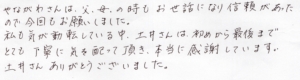 やながわさんは、父、母の時もお世話になり信頼があった
ので今回もお願いしました。
私も気が動転している中、土井さんは初めから最後まで
とても丁寧に気を配って頂き、本当に感謝しています。
土井さんありがとうございました。